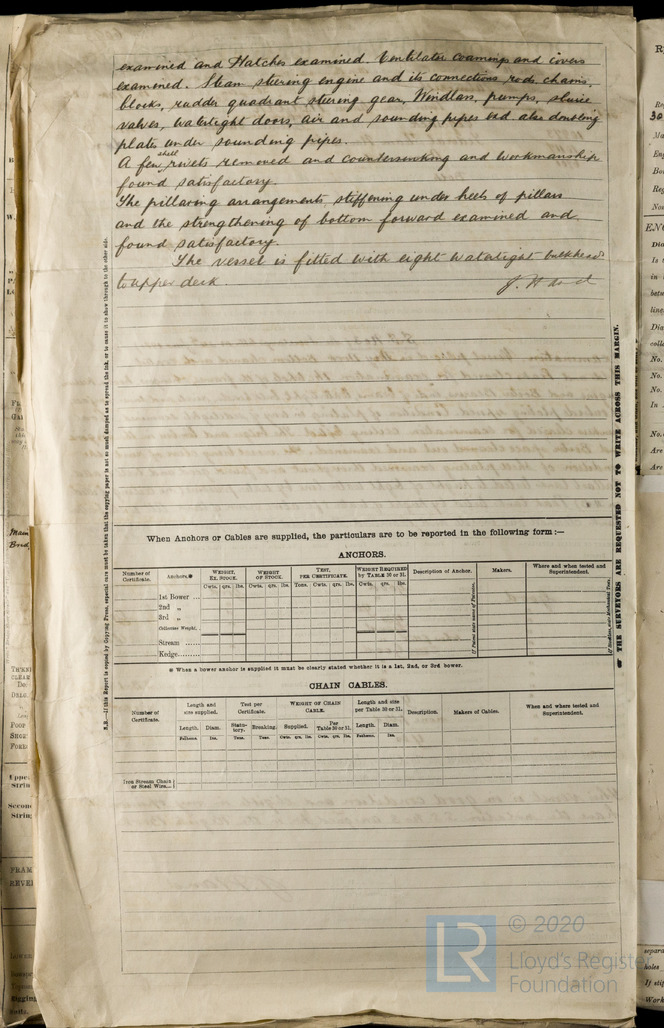 examined and Hatches examined. Ventilator coamings and covers
examined. Steam steering engine and its connections rods, chains,
blocks, rudder quadrant steering gear, Windlass, pumps, sluice
valves, watertight doors, air and sounding pipes and also doubling
plates under sounding pipes.
A few shell rivets removed and countersinking and workmanship
found satisfactory.
The pillaring arrangements, stiffening under heels of pillars
and the strengthening of bottom forward examined and
found satisfactory.
The vessel is fitted with eight watertight bulkheads
to upper deck.
THE SURVEYORS ARE REQUESTED NOT TO WRITE ACROSS THIS MARGIN.
When Anchors or Cables are supplied, the particulars are to be reported in the following form :—
ANCHORS.
Number of Certificate. Anchors.* WEIGHT, EX. STOCK. WEIGHT OF STOCK. TEST, PER CERTIFICATE. WEIGHT REQUIRED by TABLE 30 or 31. Description of Anchor. Makers. Where and when tested and Superintendent.
Cwts. qrs. lbs. Cwts. qrs. lbs. Tons. Cwts. qrs. lbs. Cwts. qrs. lbs.
1st Bower ...
2nd „
3rd „
Collective Weight.
Stream
Kedge
* When a bower anchor is supplied it must be clearly stated whether it is a 1st, 2nd, or 3rd bower.
CHAIN CABLES.
Number of Certificate. Length and size supplied. Test per Certificate. WEIGHT OF CHAIN CABLE. Length and size per Table 30 or 31. Description. Makers of Cables. When and where tested and Superintendent.
Length. Diam. Statutory. Breaking. Supplied. Per Table 30 or 31. Length. Diam.
Fathoms. Ins. Tons. Tons. Cwts. qrs. lbs. Cwts. qrs. lbs. Fathoms. Ins.
Iron Stream Chain
or Steel Wire
© 2020
LR Lloyd's Register
Foundation